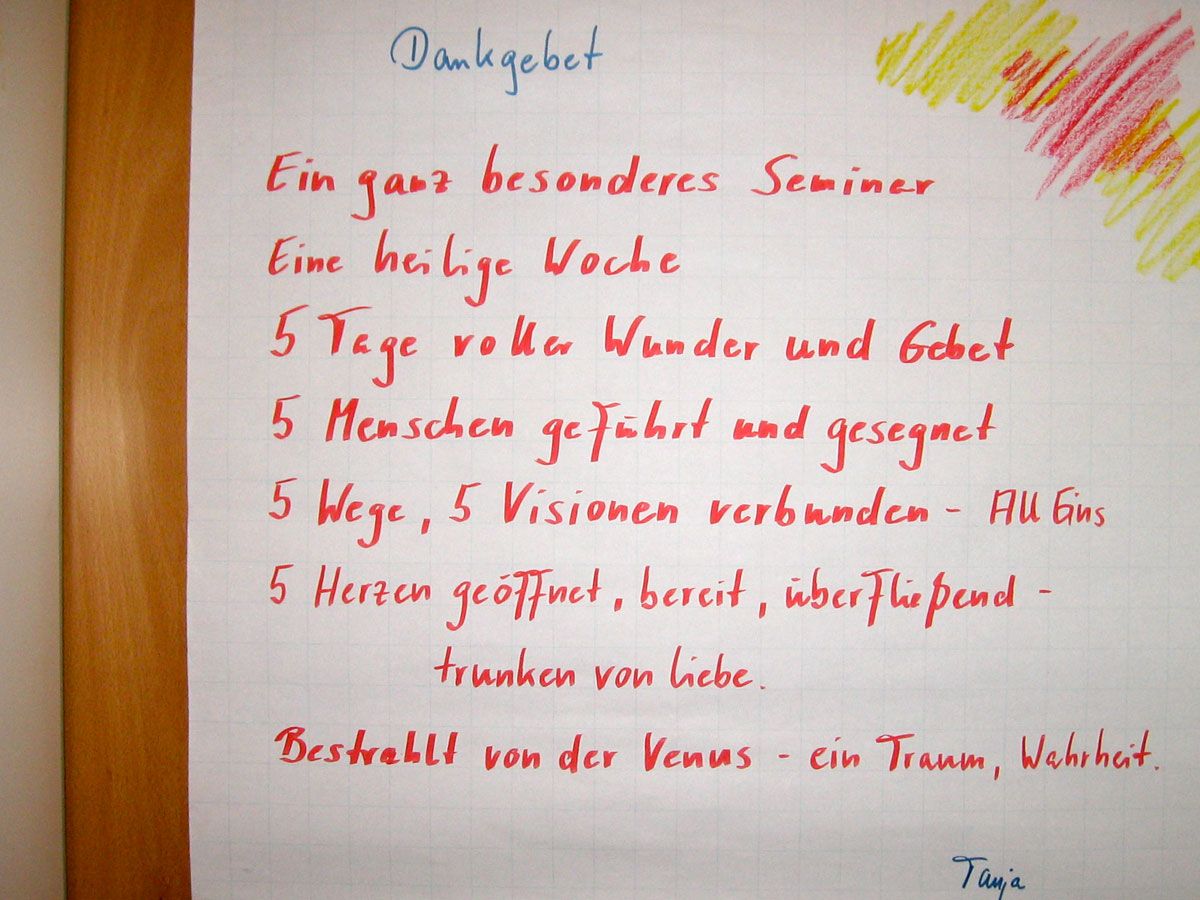 Dankgebet
Ein ganz besonderes Seminar
Eine heilige Woche
5 Tage voller Wunder und Gebet
5 Menschen geführt und gesegnet
5 Wege, 5 Visionen verbunden - All Eins
5 Herzen geöffnet, bereit, überfließend -
trunken von Liebe.
Bestrahlt von der Venus - ein Traum, Wahrheit.
Tanja